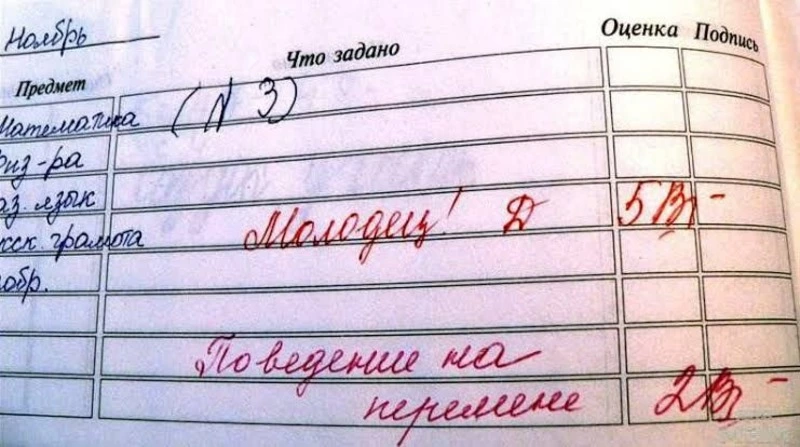 Ноябрь
Предмет Что задано Оценка Подпись
Математика (N 3)
физ-ра
аз. язык
Молодец! Д 5
сск. грамота
обр.
Поведение на
перемене 2